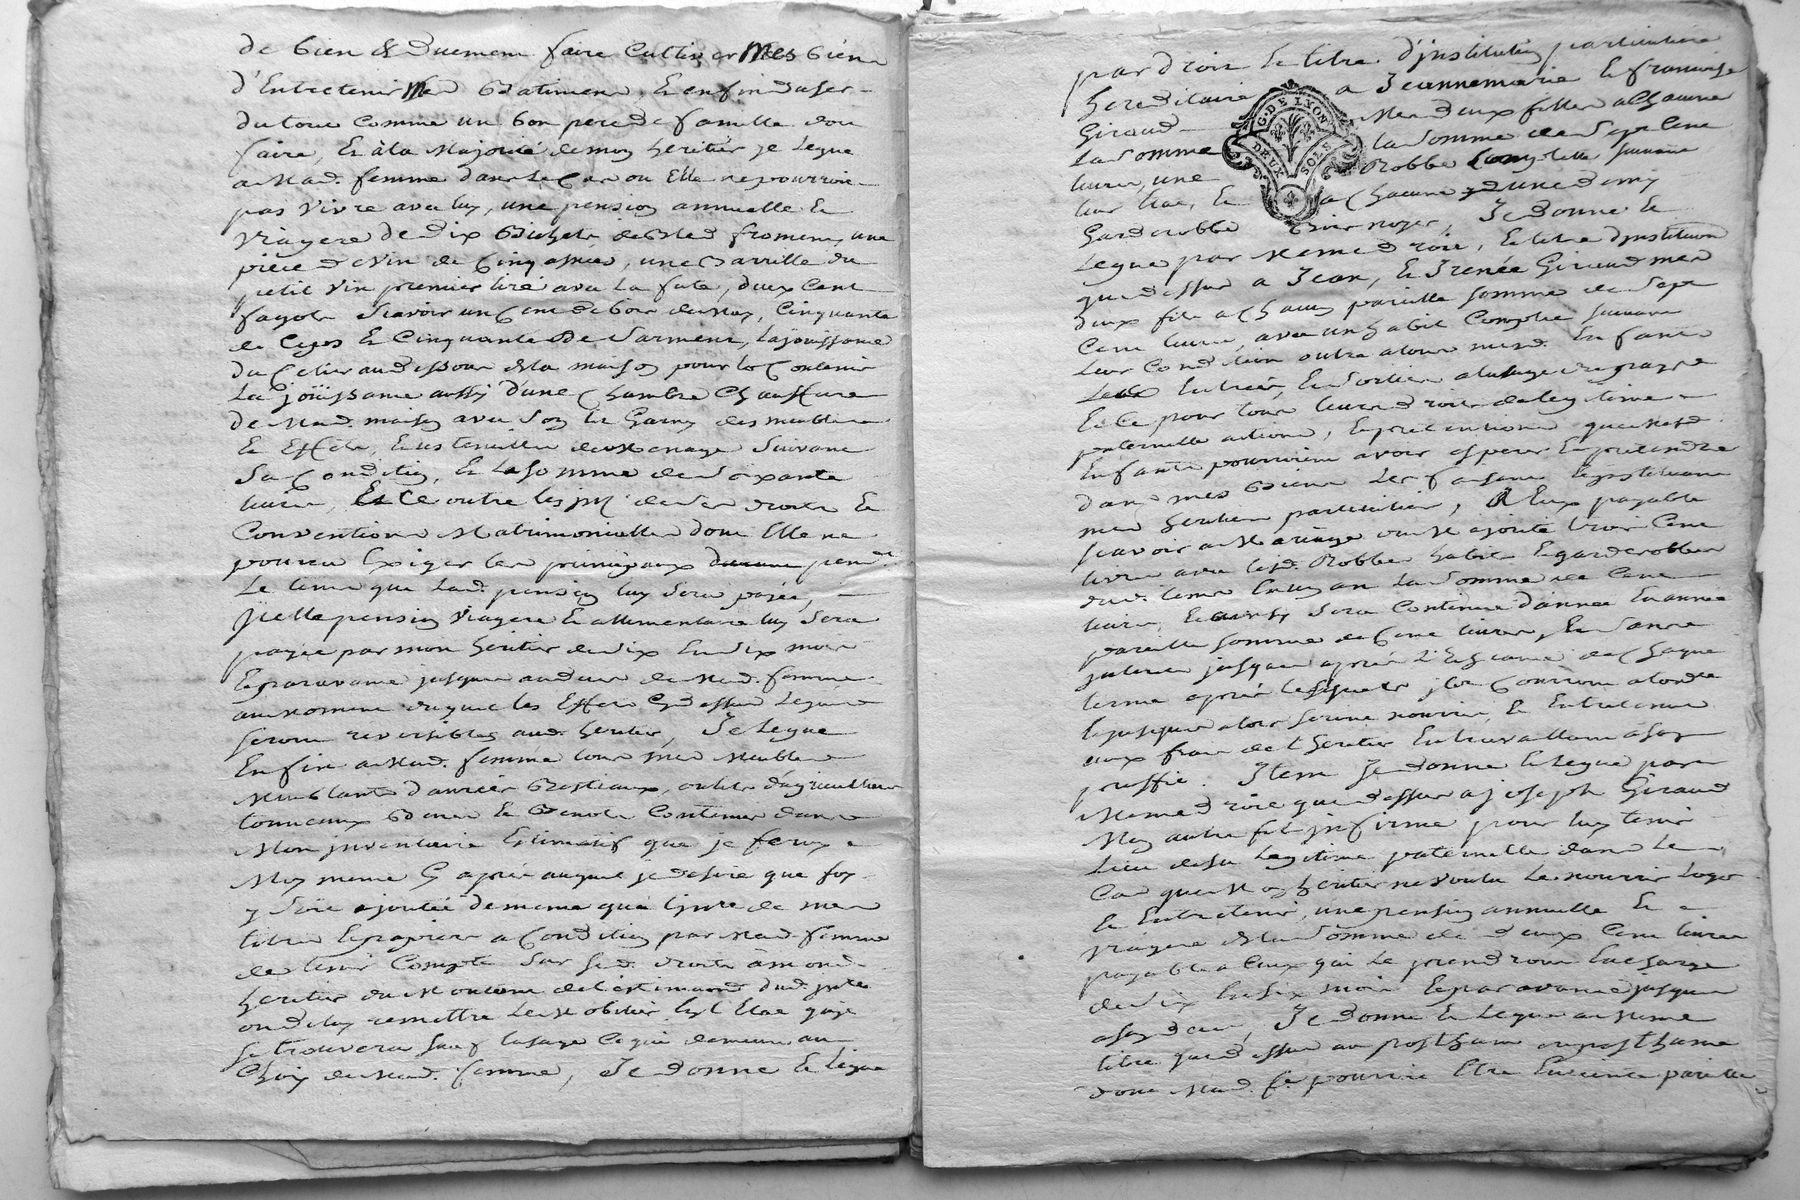 de bien & duement faire cultiver mes biens
d'Entretenir mesd Batiments, Et enfin d'user
du tout comme un bon pere de famille doit
faire, Et à la Majorité de mon heritier je Legue
a Mad. femme dans le Cas ou Elle ne pourroit
pas vivre avec luy, une pension annuelle Et
viagere de Dix Bichets de bled froment, une
piece de vin de Cinq asnées, une Barrille du
petit vin premier tiré avec la fute, deux Cent
fagots Scavoir un Cent de bois, Cinquante
de Ceps Et Cinquante de Sarment, La jouissance
du Cellier au dessous de la maison pour les Contenir
La joüissance aussy d'une Chambre
de Mad. maison avec Son Lit Garny des meubles
Et Effets, Et ustenciles de Menage Suivant
Sa Condition, Et la somme de Soixante
livres, Et Ce outre les de ses droits Et
Conventions Matrimonielles dont Elle ne
pourra Exiger les principaux pend.t
Le tems que Lad. pension luy Sera payée,
Jcelle pension viagere Et allimentaire luy Sera
payée par mon heritier de Six En Six mois
Et par avance jusques au deces de Mad. femme
au moment duquel les Effets Cy dessus Legués
seront reversibles aud. heritier, Je Legue
Enfin a Mad. femme tous mes Meubles
Meublants denrées Bestiaux, outils d'agriculture
tonneaux Et Contenus dans
Mon jnventaire Estimatif que je feray
Moy meme Cy aprés auquel je desire que foy
y Soit ajoutée de meme qu'a de mes
titres Et papiers a Condition par Mad. femme
de tenir Compte Sur Sesd. droits a mond.
heritier du Montant de l'estimation dud. jnvre
ou de luy remettre Le Mobilier En l'Etat qu'il
Se trouvera Sauf l'usage Ce qui demeure au
Choix de Mad. femme, Je donne Et Legue
par droit Et titre d'jnstitution particuliere
hereditaire a Jeannemarie Et françoise
Giraud Mes deux filles a Chacune
La Somme la Somme de Sept Cent
livres, une Robbe Complette Suivant
leur Etat, Et a Chacune une demy
Garderobbe Bois noyer, Je donne Et
Legue par Meme droit, Et titre d'jnstitution
que dessus a Jean, Et Irenée Giraud mes
deux fils a Chacun pareille Somme de Sept
Cent livres, avec un habit Complet Suivant
Leur Condition outre a tous mesd. Enfants
Leur Entrée, Et Sortie a la
Et Ce pour tous leurs droits de legitime
paternelle actions, Et pretentions que mesd.
Enfants pourroient avoir esperer Et pretendre
dans mes Biens Les faisant Et jnstituant
mes heritiers particuliers, A Eux payable
scavoir a Mariage ou Majorité trois Cent
livres avec lesd. Robbes habits Et garderobbes
dud. tems En un an La Somme de Cent
livres, Et ainsy Sera Continué d'année En année
pareille Somme de Cent livres,
jusques aprés l'Echeance de Chaque
terme aprés lesquels
Et jusques alors Seront nourris, Et Entretenus
aux frais de l'heritier En travaillant a Son
proffit. Item Je donne Et Legue par
Meme droit que dessus a joseph Giraud
Mon autre fils jnfirme pour luy tenir
Lieu de Sa Legitime paternelle dans Le
Cas que Mon heritier ne voulu Le nourrir Loger
Et Entretenir, une pension annuelle Et
viagere de la Somme de deux Cent livres
payable a Ceux qui Le prendront En Charge
de Six En Six mois Et par avance jusques
a Son deces, Je donne Et Legue au Meme
titre que dessus au posthume ou posthume
dont Mad. fe. pourroit Etre Enceinte pareille
G. DE LYON
DEUX SOLS